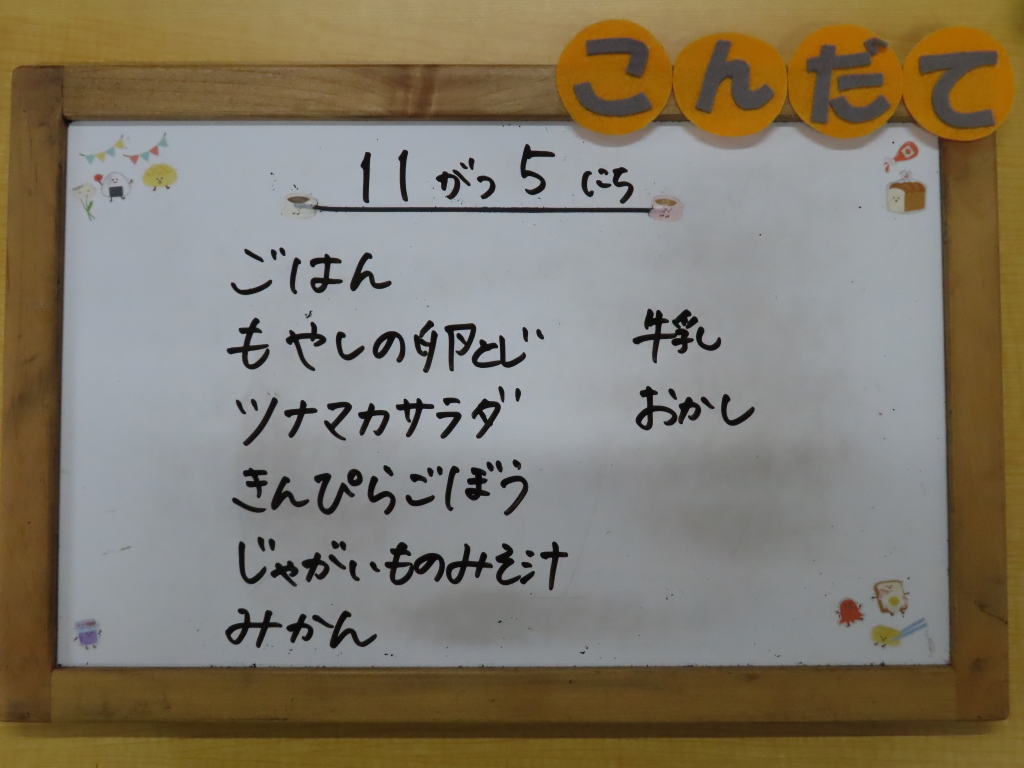 こんだて
11がつ5にち
ごはん
もやしの卵とじ
ツナマカサラダ
きんぴらごぼう
じゃがいものみそ汁
みかん
牛乳し
おかし